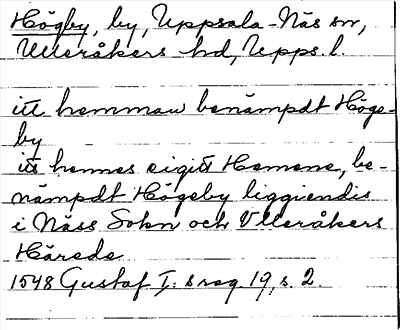 Högby, by, Uppsala-Näs sn,
Ulleråkers hd, Upps. l.
itt hemman benämpdt Höge-
by
its hennes eigitt Hemene, be-
nämpdt Högeby liggiendis
i Näss Sokn och Vlleråkers
Härede
1548 Gustaf I:s reg. 19, s. 2.